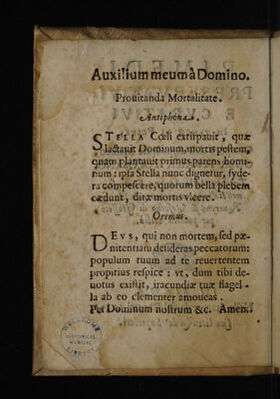 Auxilium meum à Domino.
Prouitanda Mortalitate.
Antiphona.
STELLA Cœli extirpauit, quæ
lactauit Dominum, mortis pestem,
quam plantauit primus parens homi-
num: ipsa Stella nunc dignetur, syde-
ra compescere, quorum bella plebem
cædunt, diræ mortis vlcere.
Oremus.
DEVS, qui non mortem, sed pœ-
nitentiam desideras peccatorum:
populum tuum ad te reuertentem
propitius respice: vt, dum tibi de-
uotus existit, iracundiæ tuæ flagel-
la ab eo clementer amoueas.
Per Dominum nostrum &c. Amen.
WELLCOME
HISTORICAL
MEDICAL
LIBRARY